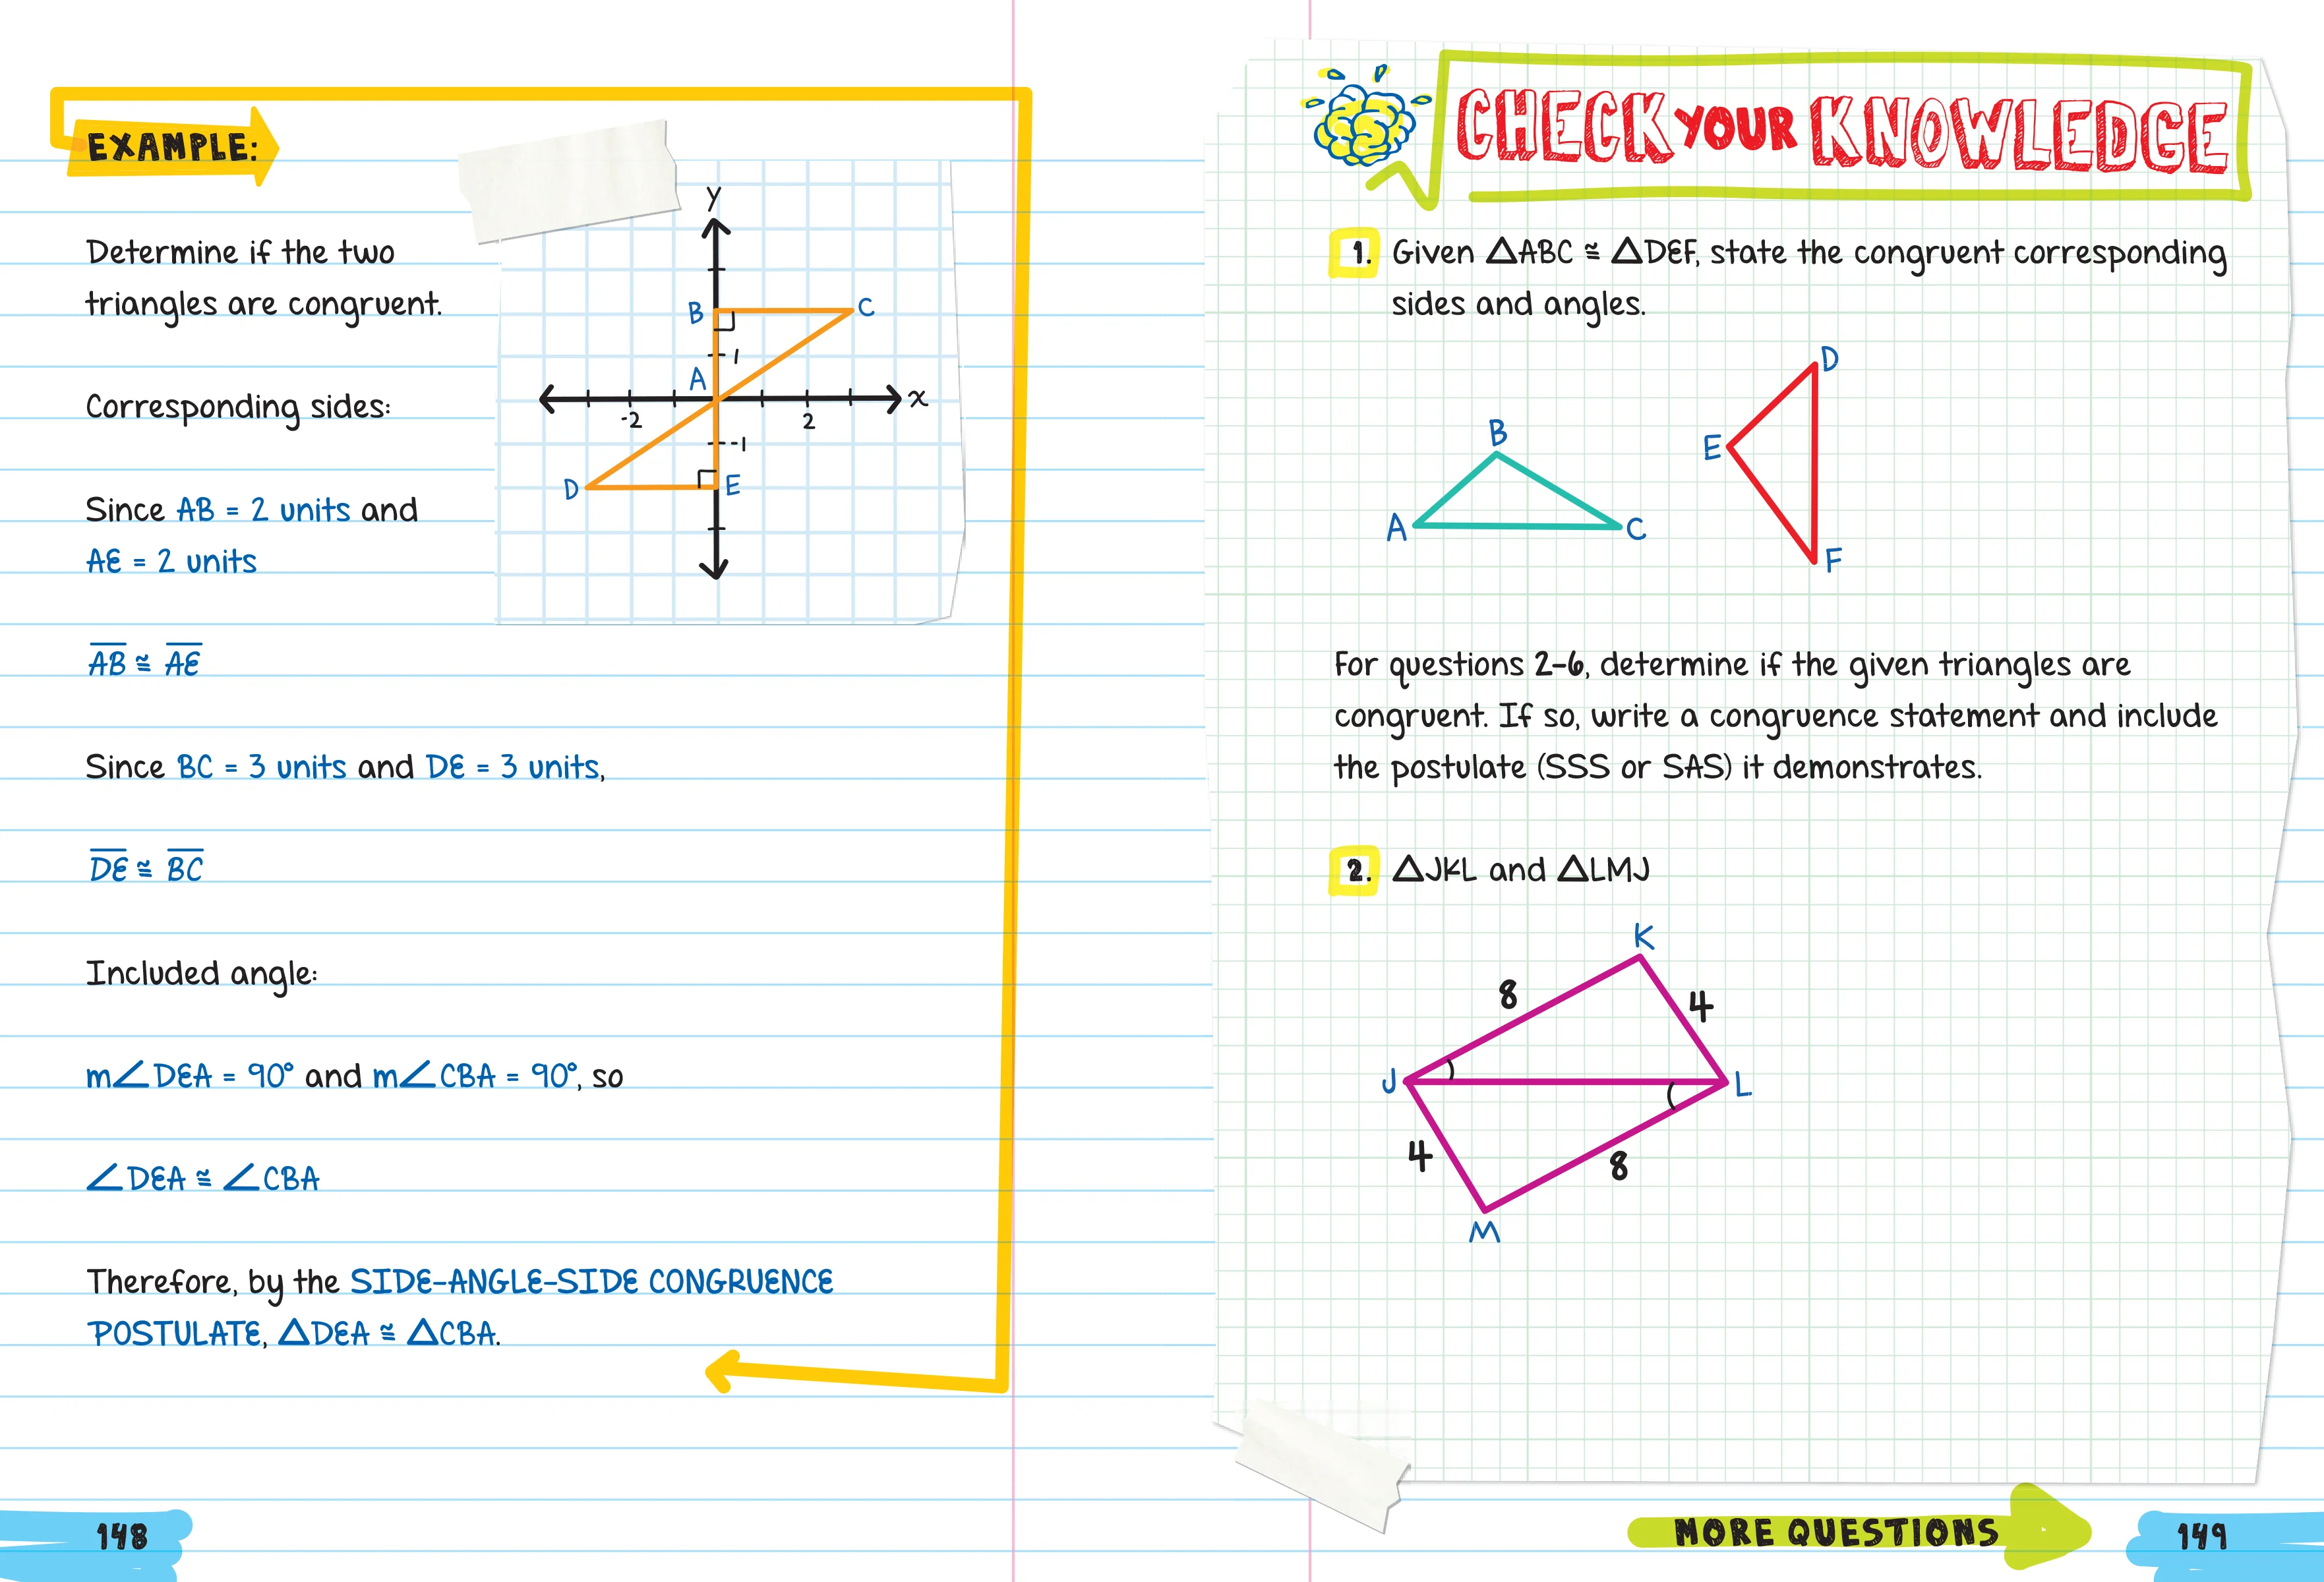 EXAMPLE:
Determine if the two
triangles are congruent.
Corresponding sides:
Since AB = 2 units and
AE = 2 units
y
B
C
1
A
x
-2
2
-1
D
E
A̅B̅ ≅ A̅E̅
Since BC = 3 units and DE = 3 units,
D̅E̅ ≅ B̅C̅
Included angle:
m∠DEA = 90° and m∠CBA = 90°, so
∠DEA ≅ ∠CBA
Therefore, by the SIDE-ANGLE-SIDE CONGRUENCE
POSTULATE, △DEA ≅ △CBA.
148
CHECK YOUR KNOWLEDGE
1. Given △ABC ≅ △DEF, state the congruent corresponding
sides and angles.
D
B
E
A
C
F
For questions 2-6, determine if the given triangles are
congruent. If so, write a congruence statement and include
the postulate (SSS or SAS) it demonstrates.
2. △JKL and △LMJ
K
8
4
J
L
4
8
M
MORE QUESTIONS
149